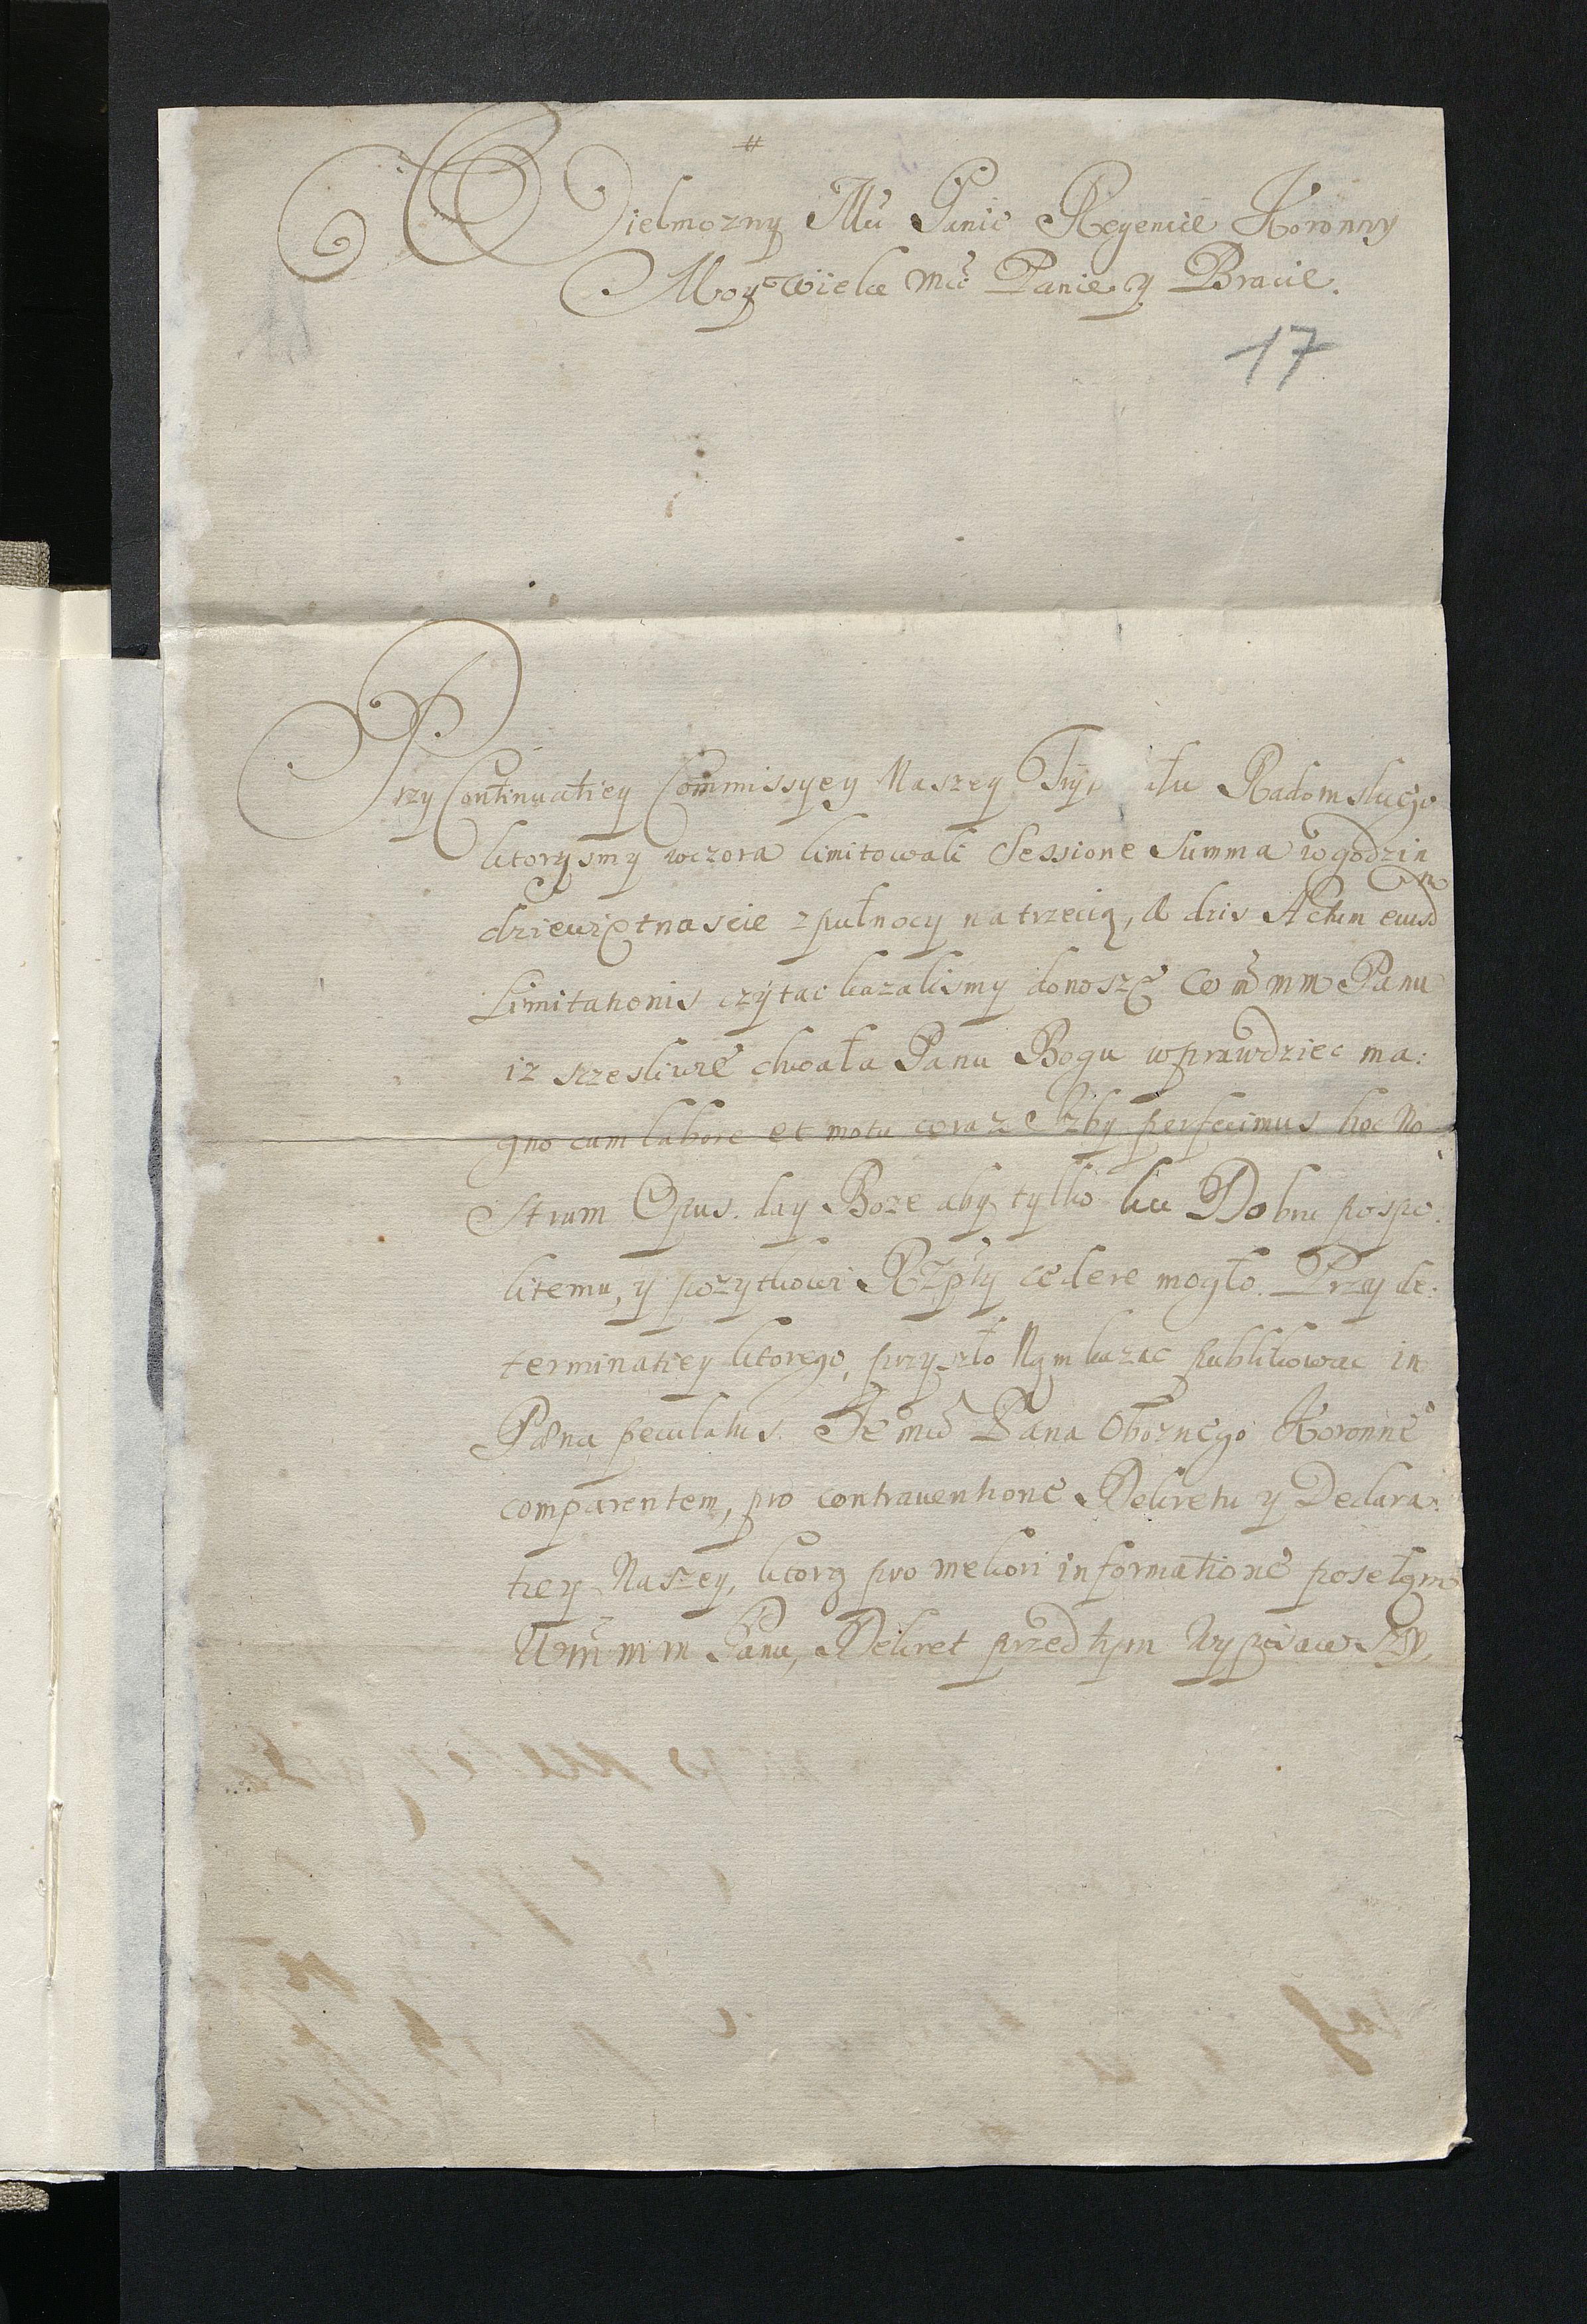 #
Wielmozny Mu Panie Regencie Koronny
Moy wielce Mci Panie y Bracie.
17
Przy Continuatiey Commissyey Naszey Tryb ału Radomskiego
ktorysmy wczora limitowali Sessione Summa w godzin
dziewiętnascie z pułnocy na trzecią, A dzis Actum eiusd
Limitationis czytac kazalismy donoszę Wm mm Panu
iz szczesliwie chwała Panu Bogu wprawdziec ma:
gno cum labore et motu coraz Izby perfecimus hoc No
strum Opus. day Boze aby tylko ku Dobru pospo:
litemu, y pozytkowi Rzpty cedere mogło. Przy de:
terminatiey ktorego, przyszło Nam kazac publikowac in
Pæna peculatus. Je mci Pana Oboznego Koronne
comparentem, pro contrauentione Dekretu y Declara:
tiey Naszey, ktorą pro meliori informatione posełam
Wm m m Panu, Dekret przed tym Wypisawszy,